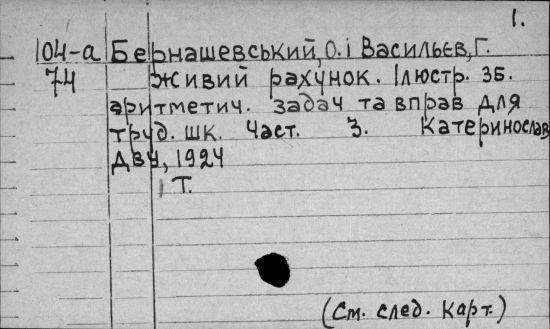 1.
104-а Бернашевський, О. і Васильєв, Г.
74 Живий рахунок. Ілюстр. зб.
аритметич. задач та вправ для
труд. шк. Част. 3. Катеринослав
ДВУ, 1924
1 Т.
(См. след. карт.)